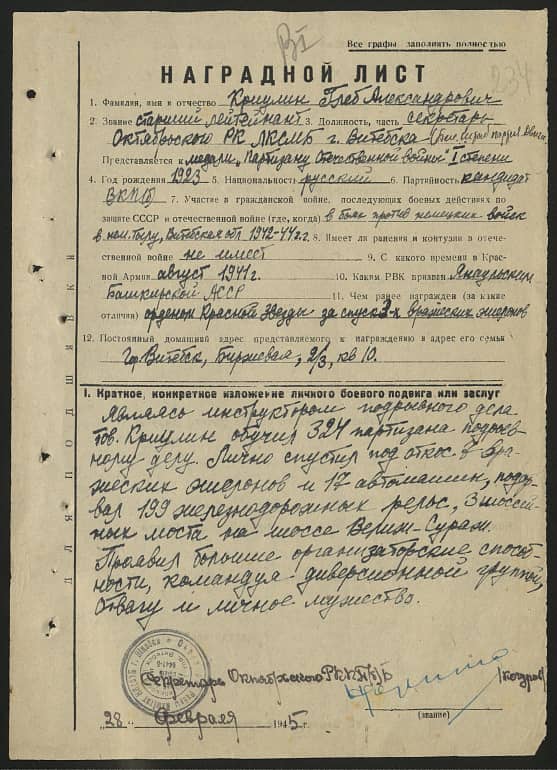 ВI
Все графы заполнять полностью
234
НАГРАДНОЙ ЛИСТ
1. Фамилия, имя и отчество Криулин Глеб Александрович
2. Звание старший лейтенант 3. Должность, часть секретарь
Октябрьского РК ЛКСМБ г. Витебска
Представляется к медали „Партизану Отечественной войны" I степени
4. Год рождения 1923 5. Национальность русский 6. Партийность кандидат
ВКП(б) 7. Участие в гражданской войне, последующих боевых действиях по
защите СССР и отечественной войне (где, когда) в боях против немецких войск
в нем. тылу, Витебская обл. 1942-44 г.г. 8. Имеет ли ранения и контузии в отече-
ственной войне не имеет 9. С какого времени в Крас-
ной Армии август 1941 г. 10. Каким РВК призван Янаульским
Башкирской АССР 11. Чем ранее награжден (за какие
отличия) орденом Красной Звезды за спуск 3-х вражеских эшелонов
12. Постоянный домашний адрес представляемого к награждению и адрес его семьи
Гор. Витебск, Биржевая, 2/3, кв 10.
I. Краткое, конкретное изложение личного боевого подвига или заслуг
Являясь инструктором подрывного дела
тов. Криулин обучил 324 партизана подрыв-
ному делу. Лично спустил под откос 6 вра-
жеских эшелонов и 17 автомашин, подор-
вал 199 железнодорожных рельс, 3 шоссей-
ных моста на шоссе Велиж-Сураж.
Проявил большие организаторские способ-
ности, командуя диверсионной группой,
отвагу и личное мужество.
Секретарь Октябрьского РК КП(б)Б
„28" февраля 1945 г.
(звание)
ДЛЯ ПОДШИВКИ